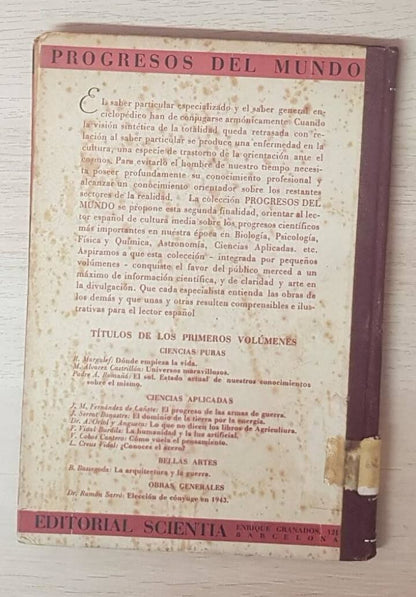 PROGRESOS DEL MUNDO
El saber particular especializado y el saber general en-
ciclopédico han de conjugarse armónicamente. Cuando
la visión sintética de la totalidad queda retrasada con re-
lación al saber particular se produce una enfermedad en la
cultura, una especie de trastorno de la orientación ante el
cosmos. Para evitarlo el hombre de nuestro tiempo necesi-
ta poseer profundamente su conocimiento profesional y
alcanzar un conocimiento orientador sobre los restantes
sectores de la realidad. - La colección PROGRESOS DEL
MUNDO se propone esta segunda finalidad, orientar al lec-
tor español de cultura media sobre los progresos científicos
más importantes en nuestra época en Biología, Psicología,
Física y Química, Astronomía, Ciencias Aplicadas. etc.
Aspiramos a que esta colección - integrada por pequeños
volúmenes - conquiste el favor del público merced a un
máximo de información científica, y de claridad y arte en
la divulgación. Que cada especialista entienda las obras de
los demás y que unas y otras resulten comprensibles e ilus-
trativas para el lector español
TÍTULOS DE LOS PRIMEROS VOLÚMENES
CIENCIAS PURAS
R. Margalef: Dónde empieza la vida.
M. Álvarez Castrillón: Universos maravillosos.
Padre A. Romañá: El sol. Estado actual de nuestros conocimientos
sobre el mismo.
CIENCIAS APLICADAS
J. M. Fernández de Cañete: El progreso de las armas de guerra.
J. Serrat Bonastre: El dominio de la tierra por la energía.
Dr. A. Oriol y Anguera: Lo que no dicen los libros de Agricultura.
F. Vidal Burdils: La humanidad y la luz artificial.
V. Cobos Cantero: Cómo vuela el pensamiento.
L. Creus Vidal: ¿Conoces el acero?
BELLAS ARTES
B. Bassegoda: La arquitectura y la guerra.
OBRAS GENERALES
Dr. Ramón Sarró: Elección de cónyuge en 1943.
EDITORIAL SCIENTIA ENRIQUE GRANADOS, 121
BARCELONA